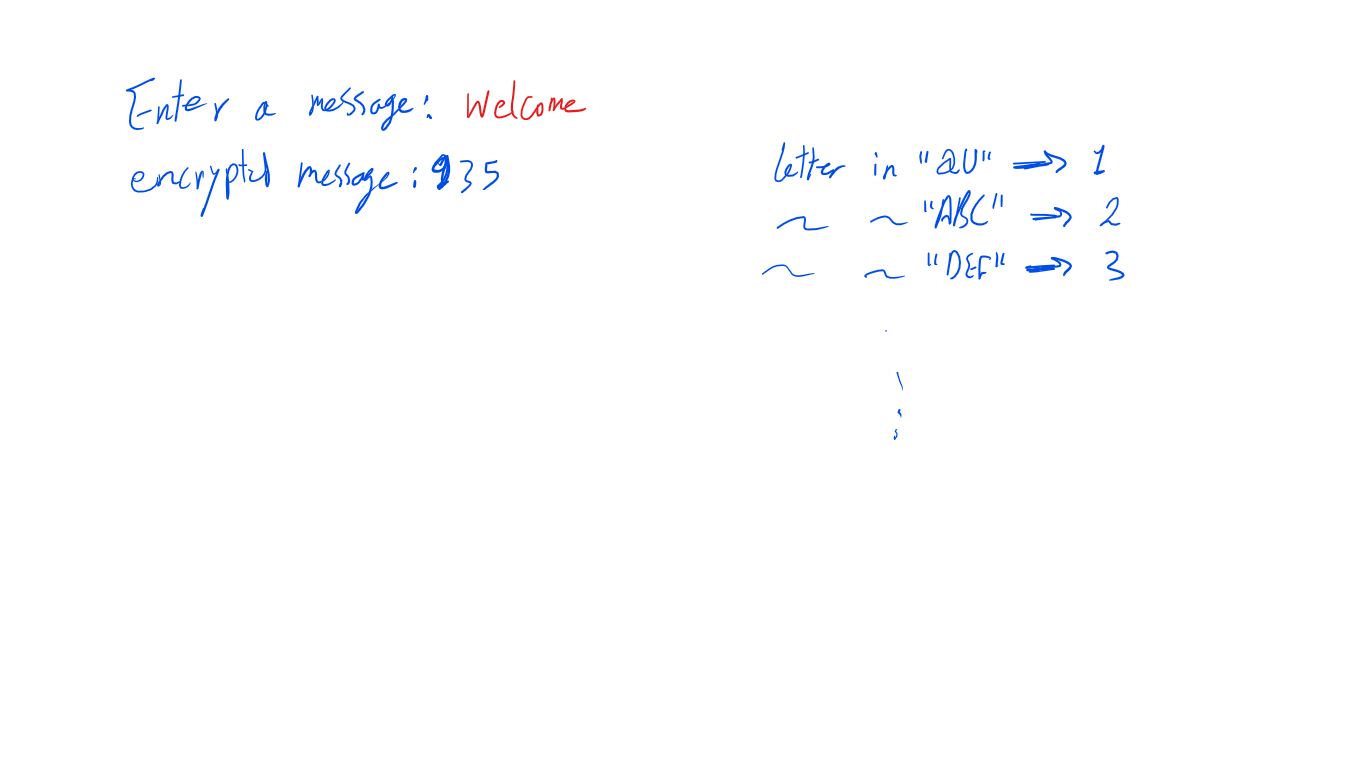 Enter a message: Welcome
encrypted message: 935
letter in "QU" => 1
~ ~ "ABC" => 2
~ ~ "DEF" => 3